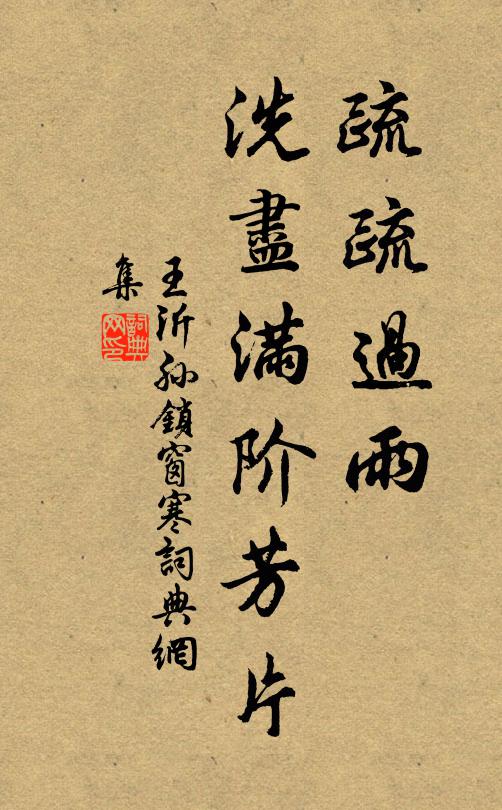 疏疏過雨
洗盡滿阶芳片
王沂孙鎖窗寒詞典網
集
詞典
网印